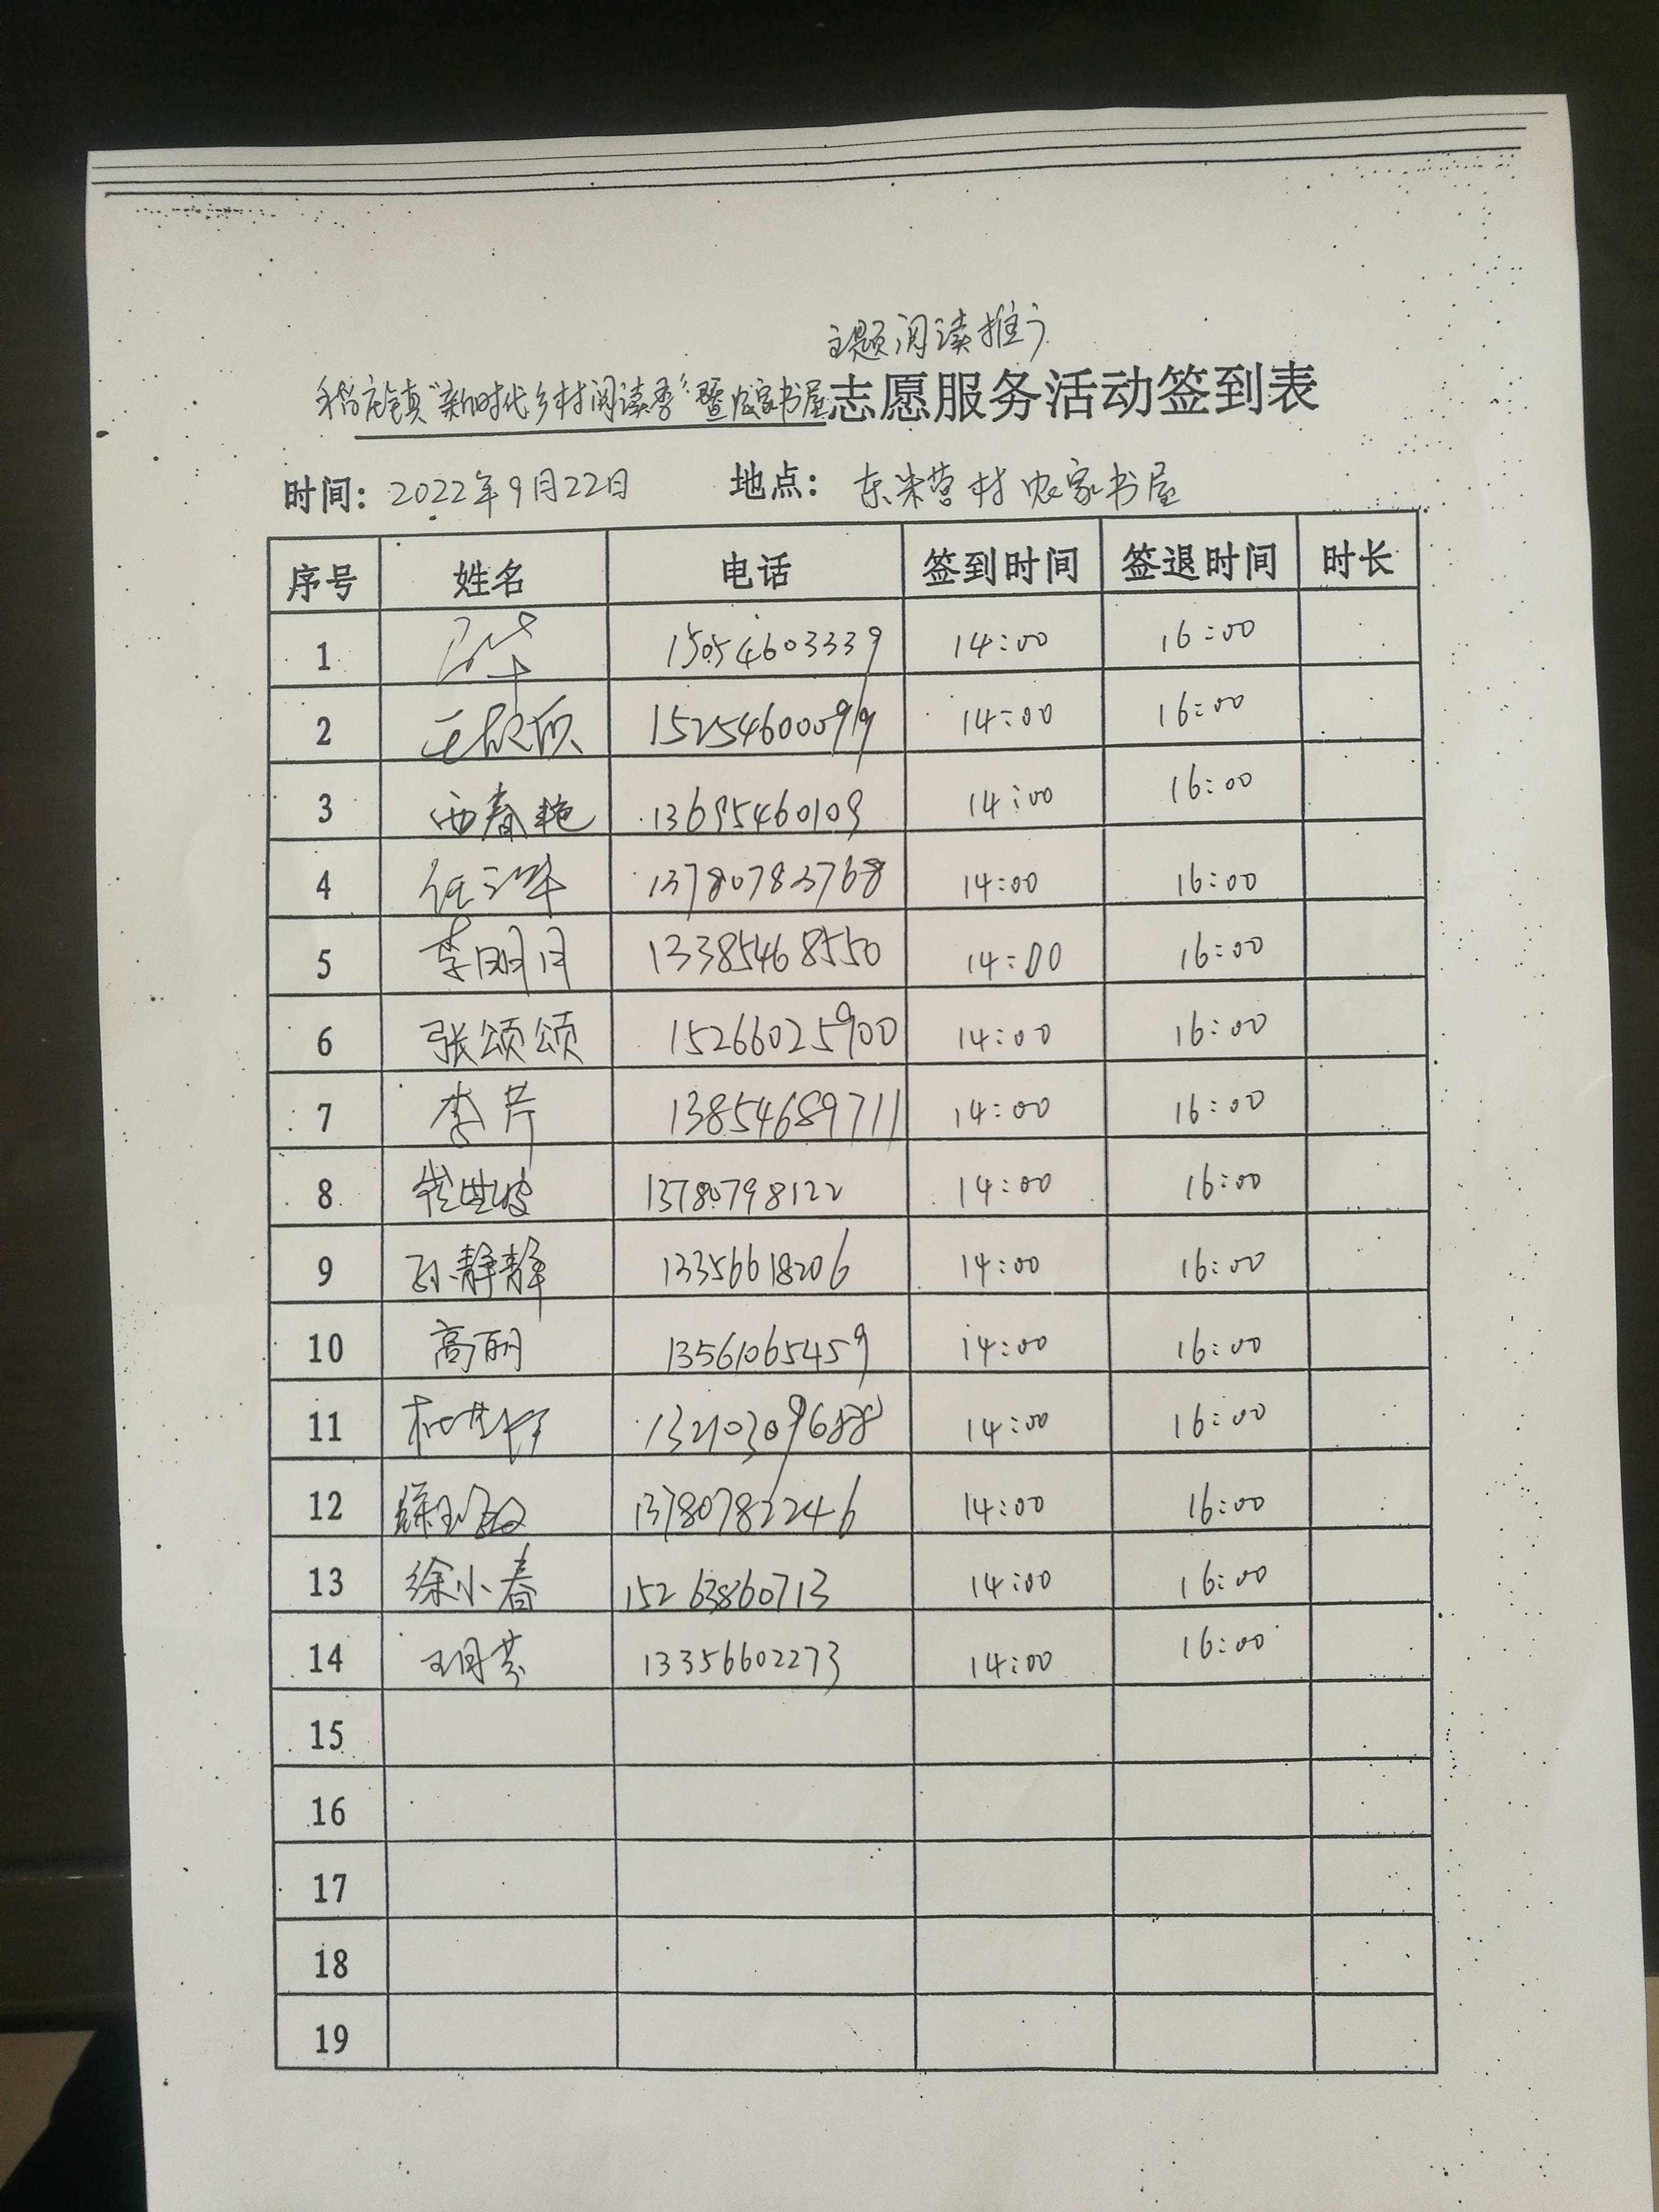 主题阅读推广
稻庄镇“新时代乡村阅读季”暨农家书屋志愿服务活动签到表
时间：2022年9月22日 地点：东米营村农家书屋
序号 姓名 电话 签到时间 签退时间 时长
1 15054603339 14:00 16:00
2 15254600099 14:00 16:00
3 西春艳 13695460109 14:00 16:00
4 13780783768 14:00 16:00
5 李明月 13385468550 14:00 16:00
6 张颂颂 15266025900 14:00 16:00
7 李芹 13854689711 14:00 16:00
8 13780798122 14:00 16:00
9 孙静静 13356618206 14:00 16:00
10 高丽 13561065459 14:00 16:00
11 13210309688 14:00 16:00
12 13780782246 14:00 16:00
13 徐小春 15263860713 14:00 16:00
14 王月芬 13356602273 14:00 16:00
15
16
17
18
19